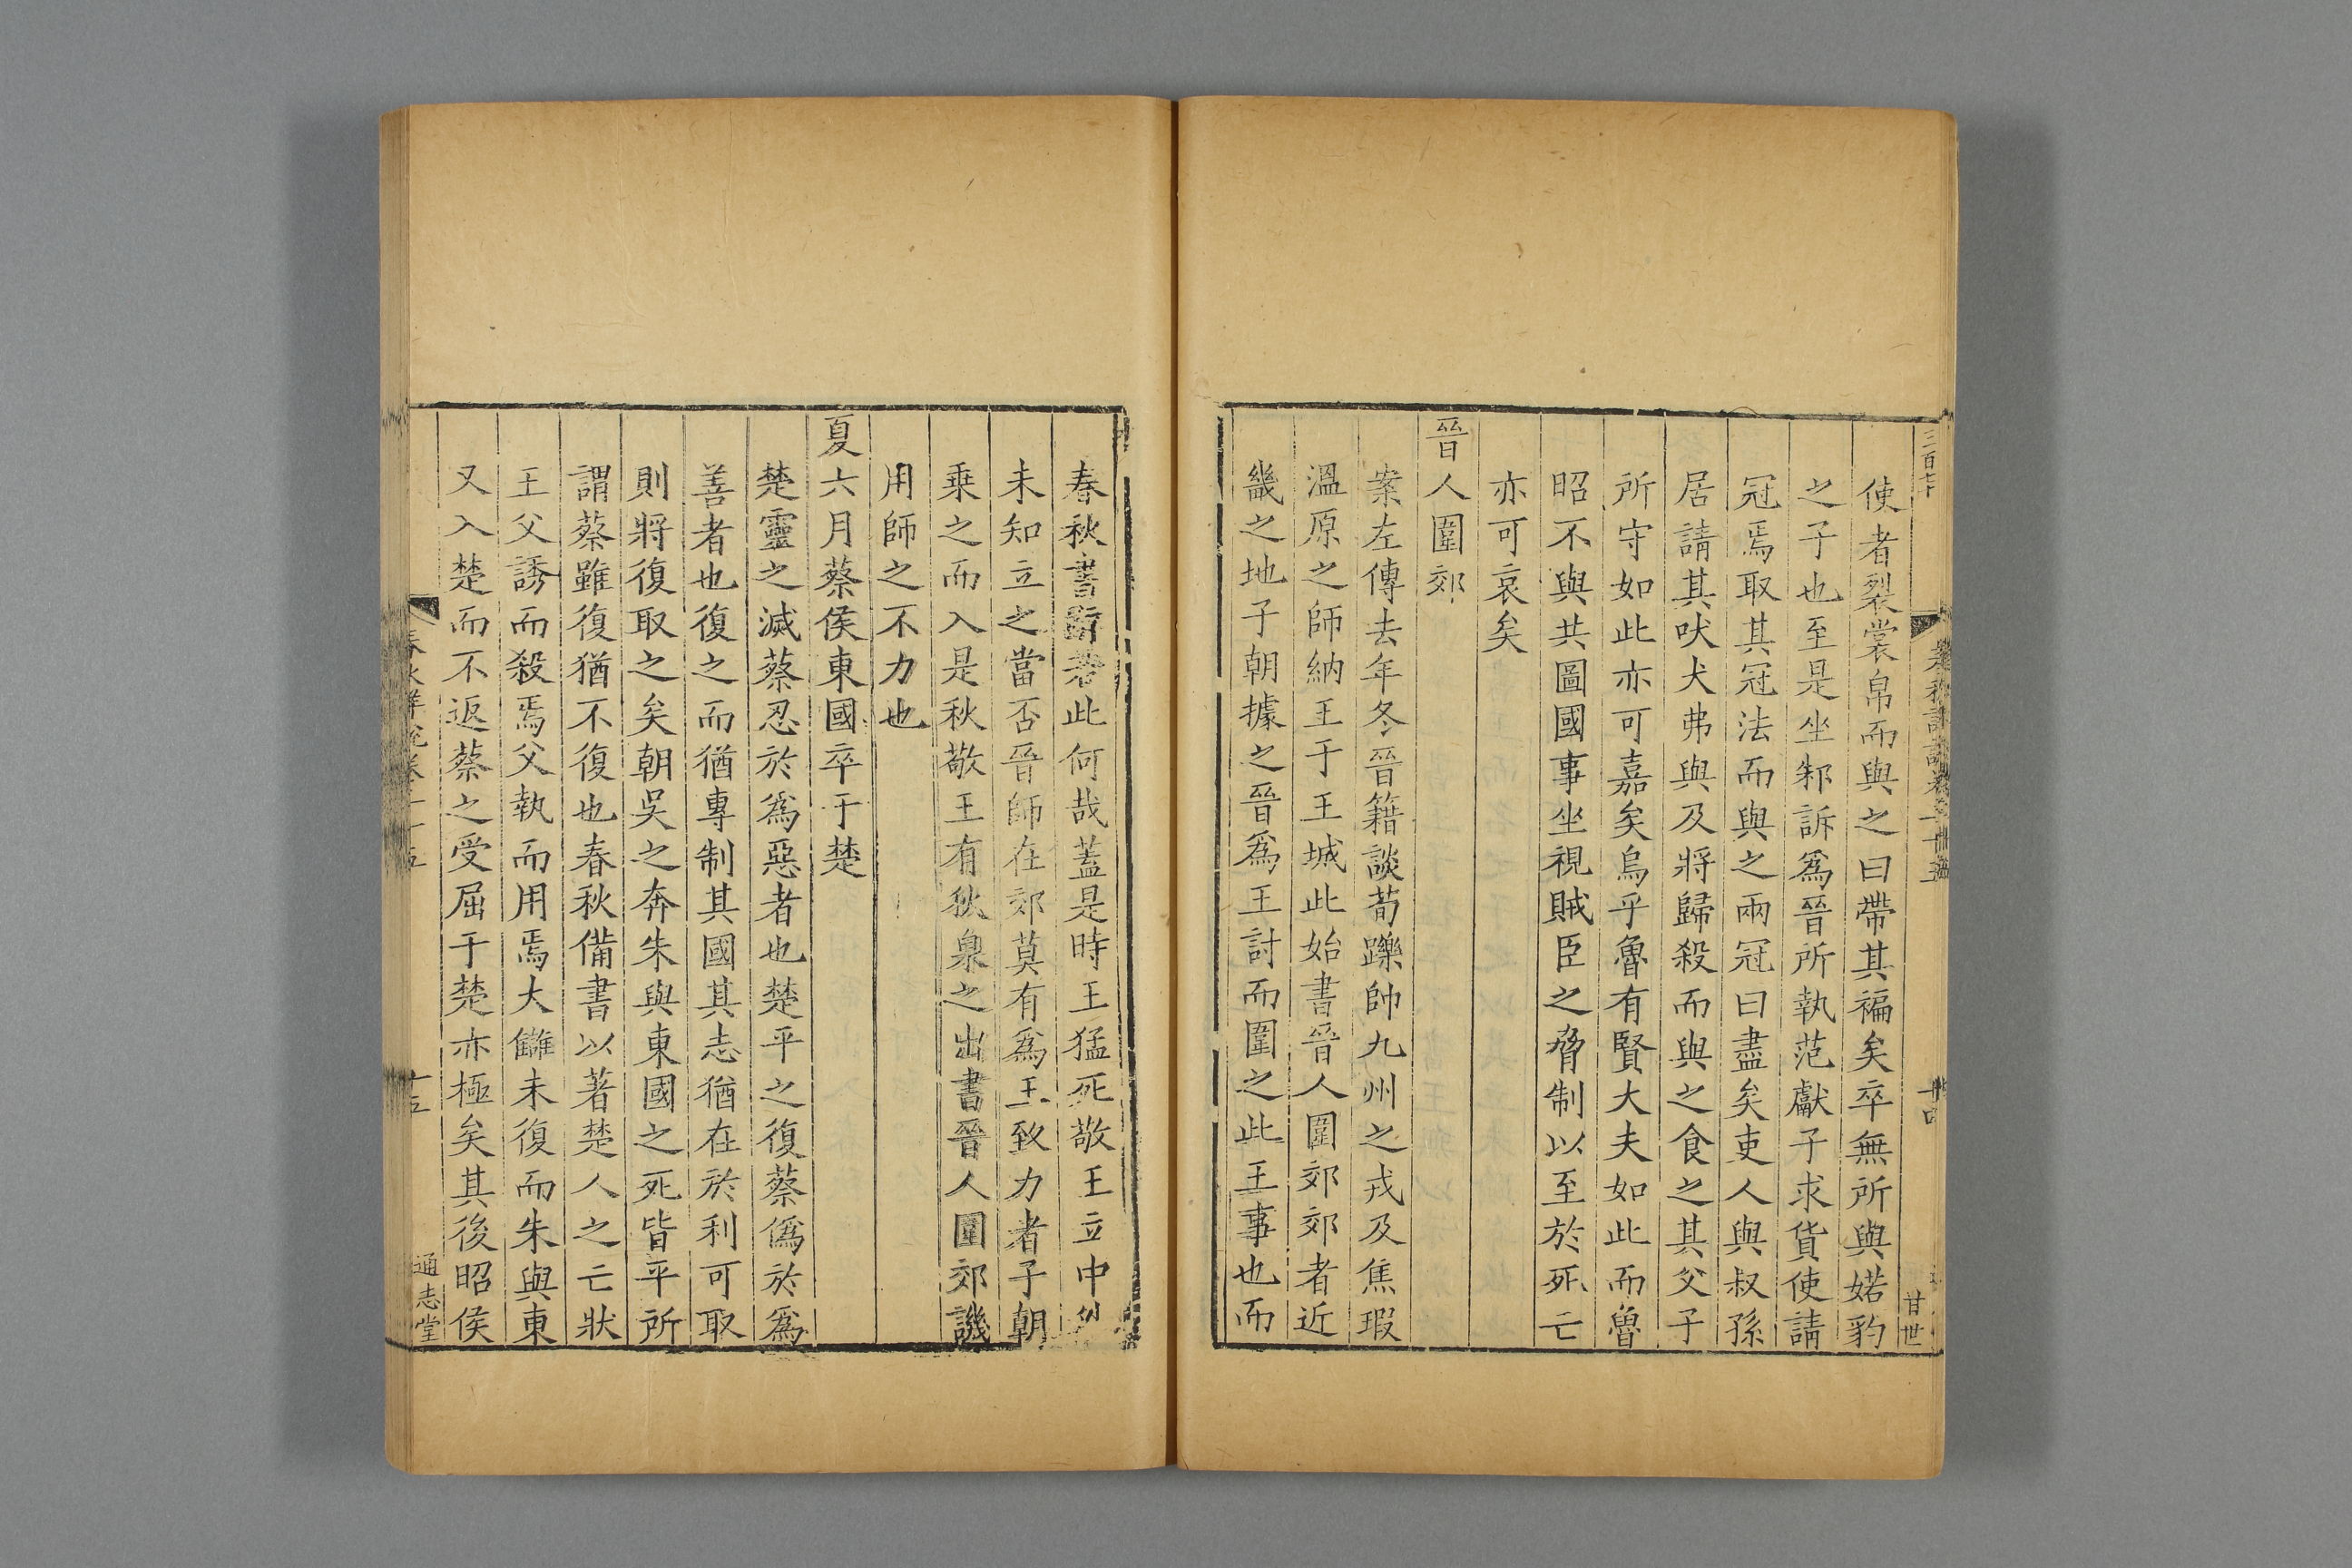 三百七十
甘世
使者裂裳帛而與之曰帶其褊矣卒無所與婼豹
之子也至是坐邾訴爲晉所執范獻子求貨使請
冠焉取其冠法而與之兩冠曰盡矣吏人與叔孫
居請其吠犬弗與及將歸殺而與之食之其父子
所守如此亦可嘉矣烏乎魯有賢大夫如此而魯
昭不與共圖國事坐視賊臣之脅制以至於死亡
亦可哀矣
晉人圍郊
案左傳去年冬晉籍談荀躒帥九州之戎及焦瑕
溫原之師納王于王城此始書晉人圍郊郊者近
畿之地子朝據之晉爲王討而圍之此王事也而
春秋書此何哉蓋是時王猛死敬王立中
未知立之當否晉師在郊莫有爲王致力者子朝
乗之而入是秋敬王有狄泉之出書晉人圍郊譏
用師之不力也
夏六月蔡侯東國卒于楚
楚靈之滅蔡忍於爲惡者也楚平之復蔡僞於爲
善者也復之而猶專制其國其志猶在於利可取
則將復取之矣朝吳之奔朱與東國之死皆平所
謂蔡雖復猶不復也春秋備書以著楚人之亡狀
王父誘而殺焉父執而用焉大讎未復而朱與東
又入楚而不返蔡之受屈于楚亦極矣其後昭侯
十五
通志堂